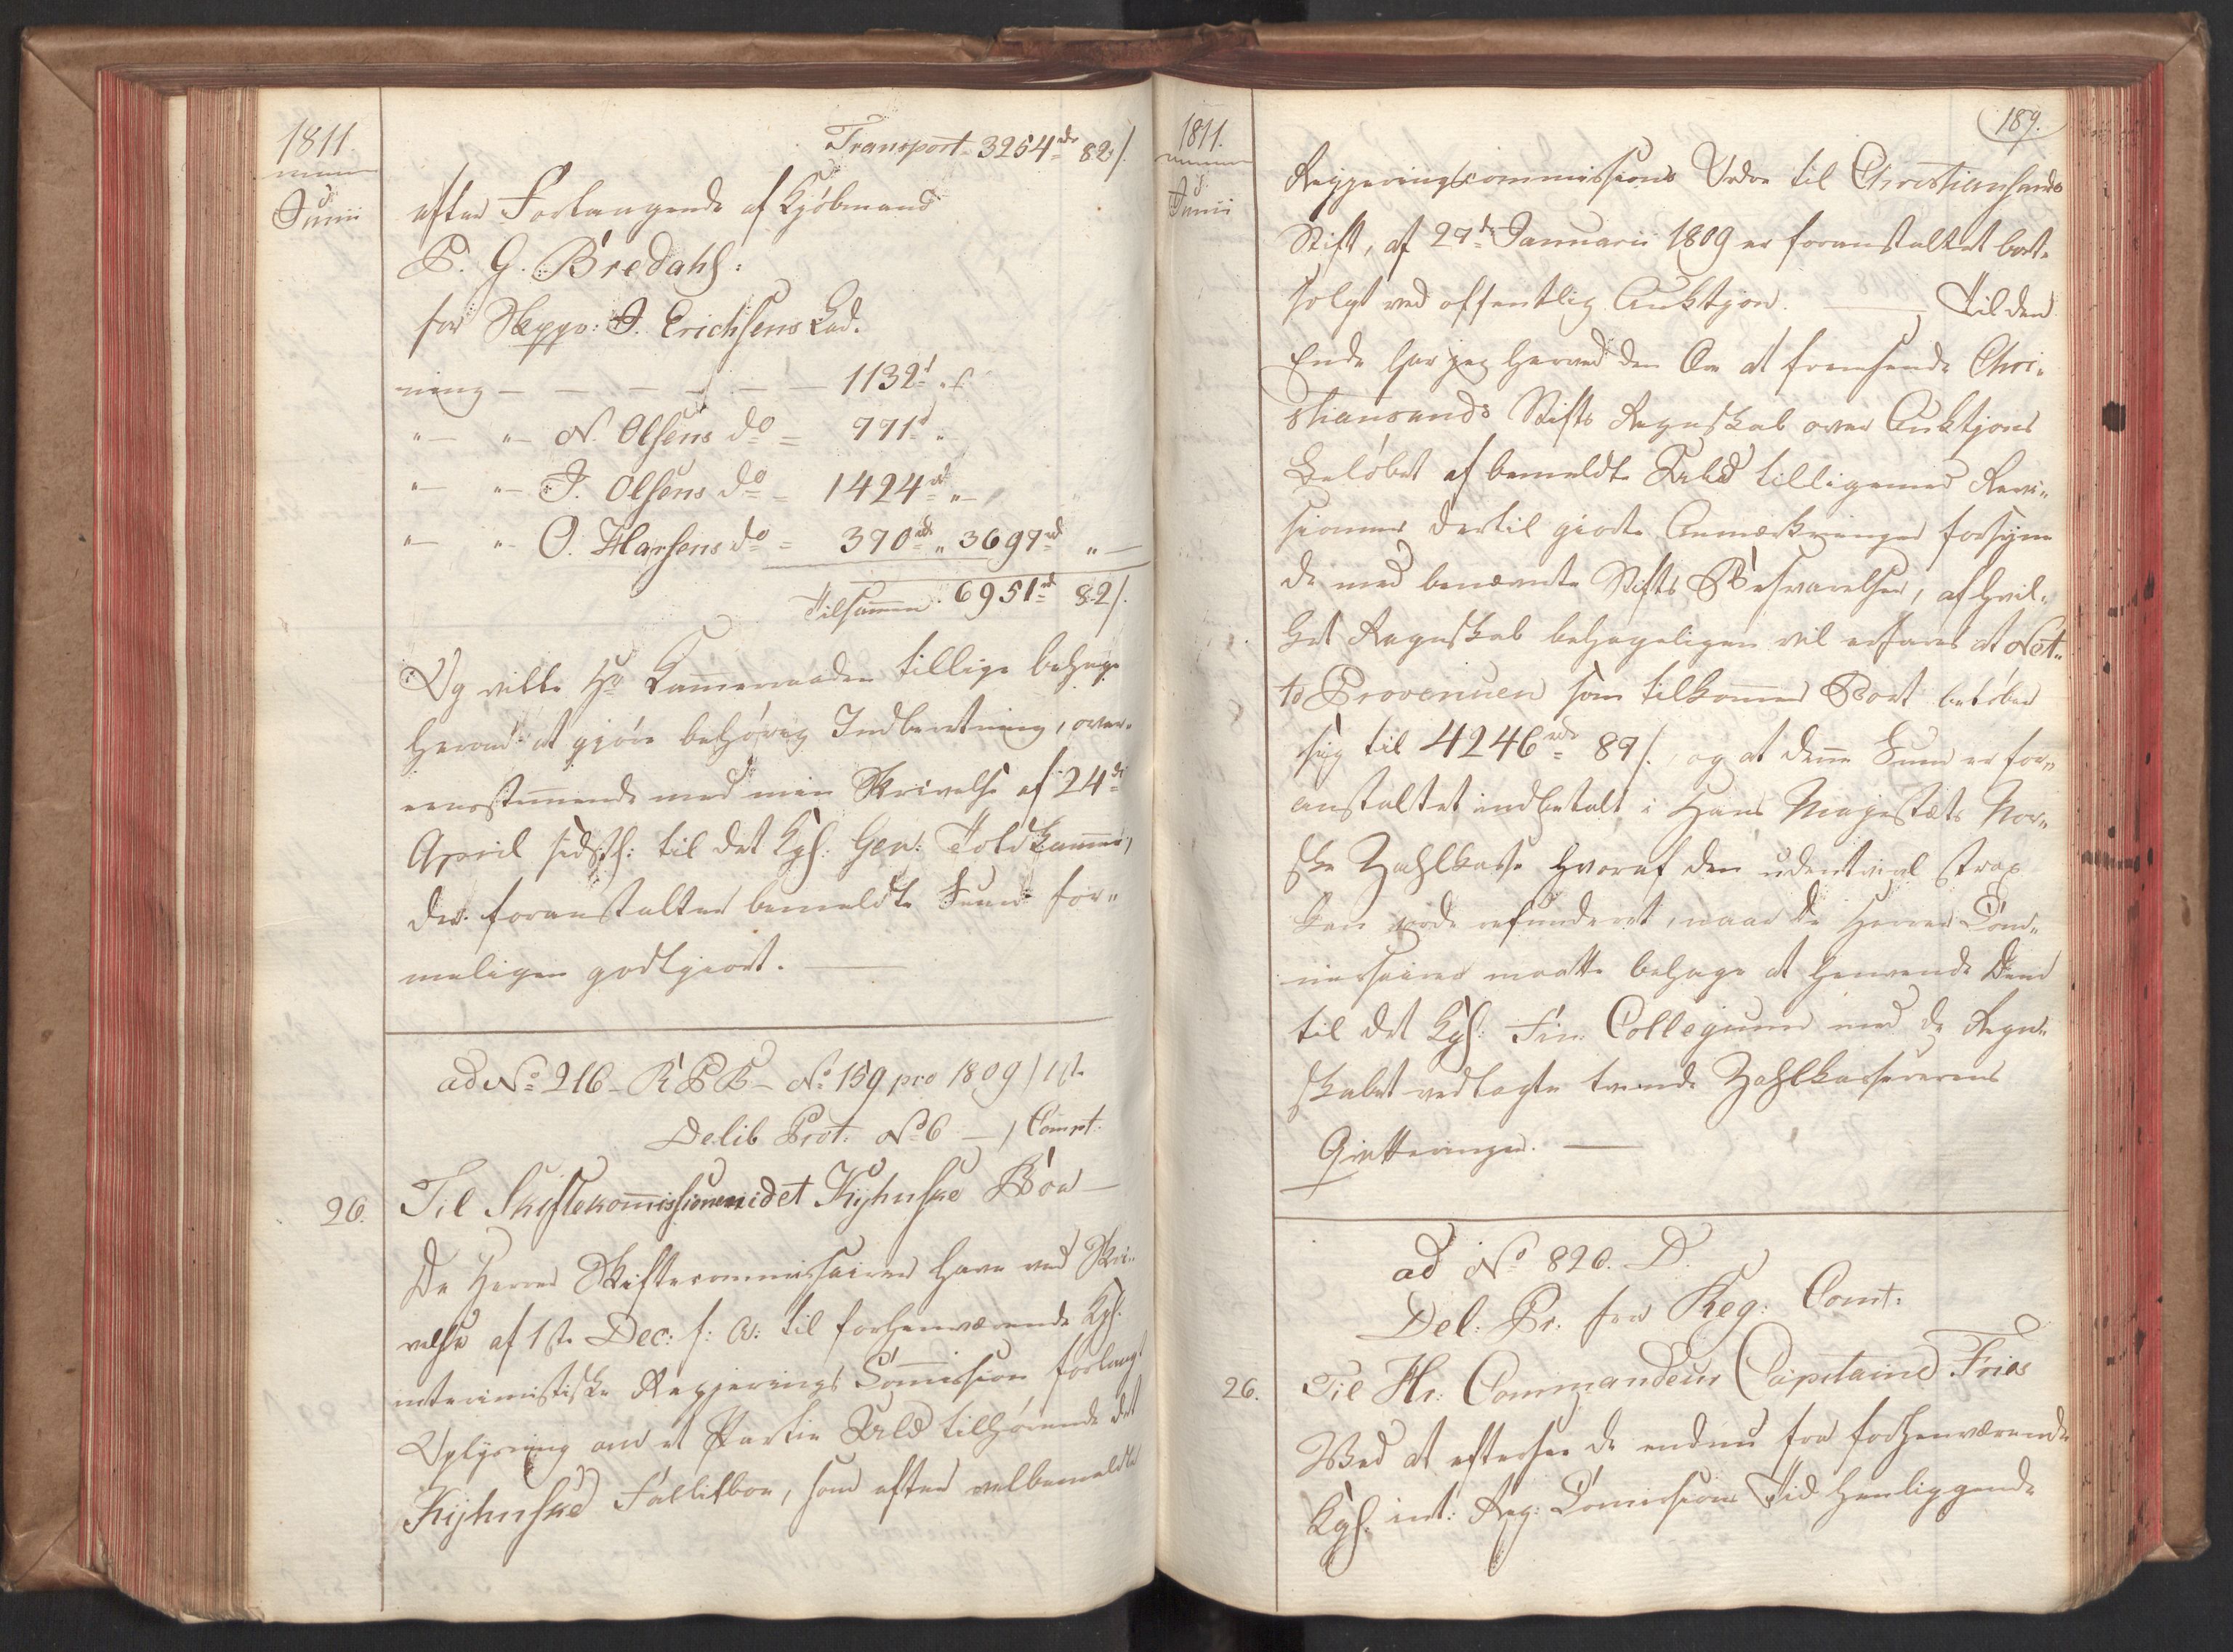 1811.
Junii
Transport 3254 rd 82 s.
efter Forlangende af Kjøbmand
P. G. Bredahl:
for Skipp: J. Erichsens Lad-
ning — — — — — — 1132 d „ s
„— „— N. Olsens do = 771 d „
„— „— J. Olsens do = 1424 rd „—
„— „— O. Hansens do = 370 rd „ 3697 rd „—
Tilsammen 6951 rd 82 s.
Og ville Hr Kammerraaden tillige behage
herom at gjöre behörig Indberetning, over-
eensstemmende med min Skrivelse af 24de
April sidstl: til det Kgl: Gen: Toldkammer,
der foranstalter bemeldte Sum for-
meligen godtgiort. —
ad No 216 – R P B – No 159 pro 1809 / 1ste
Delib Prot: No 6 — / Comt.
26.
Til Skiftekommissionen i det Kyhnske Boe —
De Herrer Skiftecommissairer have ved Skri-
velse af 1ste Dec: f: A: til forhenværende Kgl:
interimistiske Regjerings Commission forlangt
Oplysning om et Partie Uld tilhørende det
Kyhnske Fallitboe, som efter velbemeldte
1811.
Junii
189.
Regjeringscommissions Ordre til Christiansands
Stift, af 27de Januarii 1809 er foranstaltet bort-
solgt ved offentlig Auktjon. — Til den
Ende har jeg herved den Ære at fremsende Chri-
stiansands Stifts Regnskab over Auktjons
Beløbet af bemeldte Uld tilligemed Revi-
sionens dertil giorte Anmærkninger forsyne-
de med benævnte Stifts Besvarelser, af hvil-
ket Regnskab behageligen vil erfares at Net-
to Provenuen som tilkommer Boet beløber
sig til 4246 rd 89 s., og at denne Sum er for-
anstaltet indbetalt i Hans Majestæts Nor-
ske Zahlkasse hvoraf den udentvivl strax
kan vorde refunderet, naar De Herrer Com-
missairer maatte behage at henvende Dem
til det Kgl: Fin: Collegium med de Regn-
skabet vedlagte tvende Zahlkasserens
Qvitteringer. —
ad No 820. D.
Del: Pr. fra Reg: Comt:
26.
Til Hr: Commandeur Capitaine Fries
Ved at eftersee de endnu fra forhenværende
Kgl: int: Reg: Commissions Tid henliggende